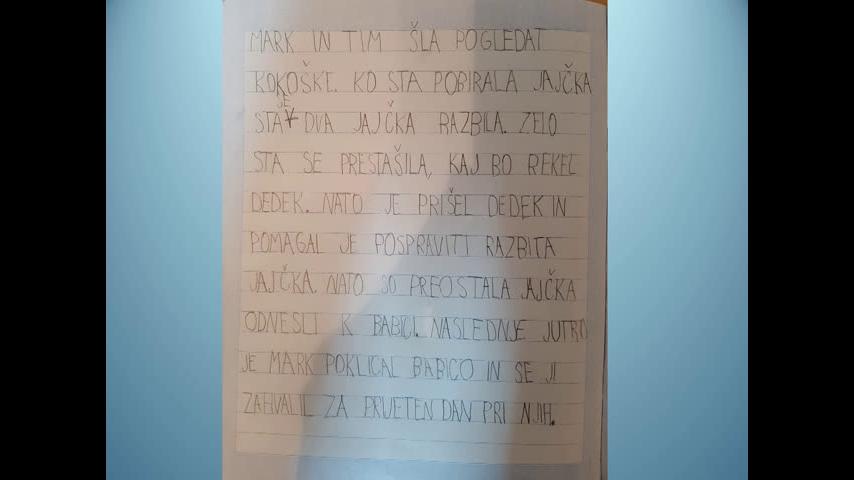 MARK IN TIM ŠLA POGLEDAT
KOKOŠKE. KO STA POBIRALA JAJČKA
STA JE DVA JAJČKA RAZBILA. ZELO
STA SE PRESTAŠILA, KAJ BO REKEL
DEDEK. NATO JE PRIŠEL DEDEK IN
POMAGAL JE POSPRAVITI RAZBITA
JAJČKA. NATO SO PREOSTALA JAJČKA
ODNESLI K BABICI. NASLEDNJE JUTRO
JE MARK POKLICAL BABICO IN SE JI
ZAHVALIL ZA PRIJETEN DAN PRI NJIH.